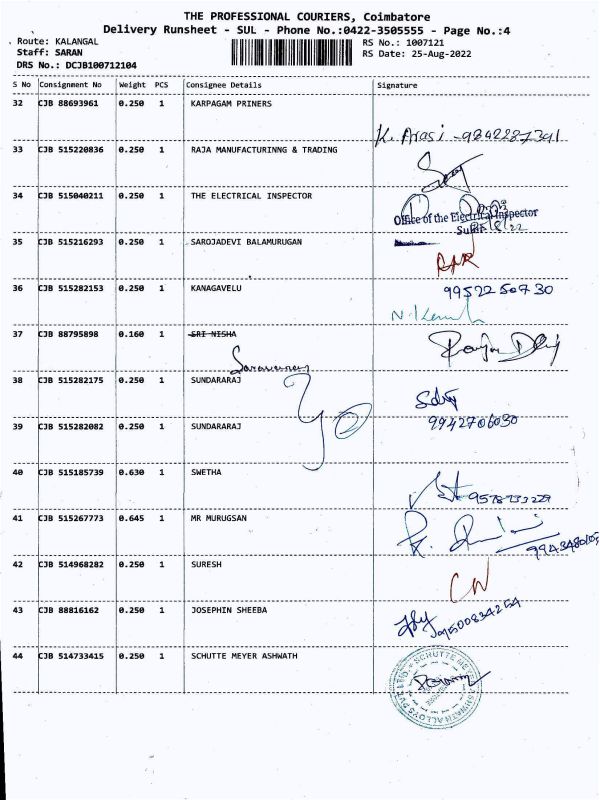 THE PROFESSIONAL COURIERS, Coimbatore
Delivery Runsheet - SUL - Phone No.:0422-3505555 - Page No.:4
Route: KALANGAL RS No.: 1007121
Staff: SARAN RS Date: 25-Aug-2022
DRS No.: DCJB100712104
S No Consignment No Weight PCS Consignee Details Signature
32 CJB 88693961 0.250 1 KARPAGAM PRINERS
K. Arasi - 9842287391
33 CJB 515220836 0.250 1 RAJA MANUFACTURINNG & TRADING
34 CJB 515040211 0.250 1 THE ELECTRICAL INSPECTOR
Office of the Electrical Inspector
35 CJB 515216293 0.250 1 SAROJADEVI BALAMURUGAN
36 CJB 515282153 0.250 1 KANAGAVELU 9952250730
37 CJB 88795898 0.160 1 SRI NISHA
Saravanan
38 CJB 515282175 0.250 1 SUNDARARAJ
39 CJB 515282082 0.250 1 SUNDARARAJ 9942706030
40 CJB 515185739 0.630 1 SWETHA
9578733229
41 CJB 515267773 0.645 1 MR MURUGSAN
42 CJB 514968282 0.250 1 SURESH
43 CJB 88816162 0.250 1 JOSEPHIN SHEEBA 9500834254
44 CJB 514733415 0.250 1 SCHUTTE MEYER ASHWATH
SCHUTTE MEYER ASHWATH ALLOYS PVT LTD